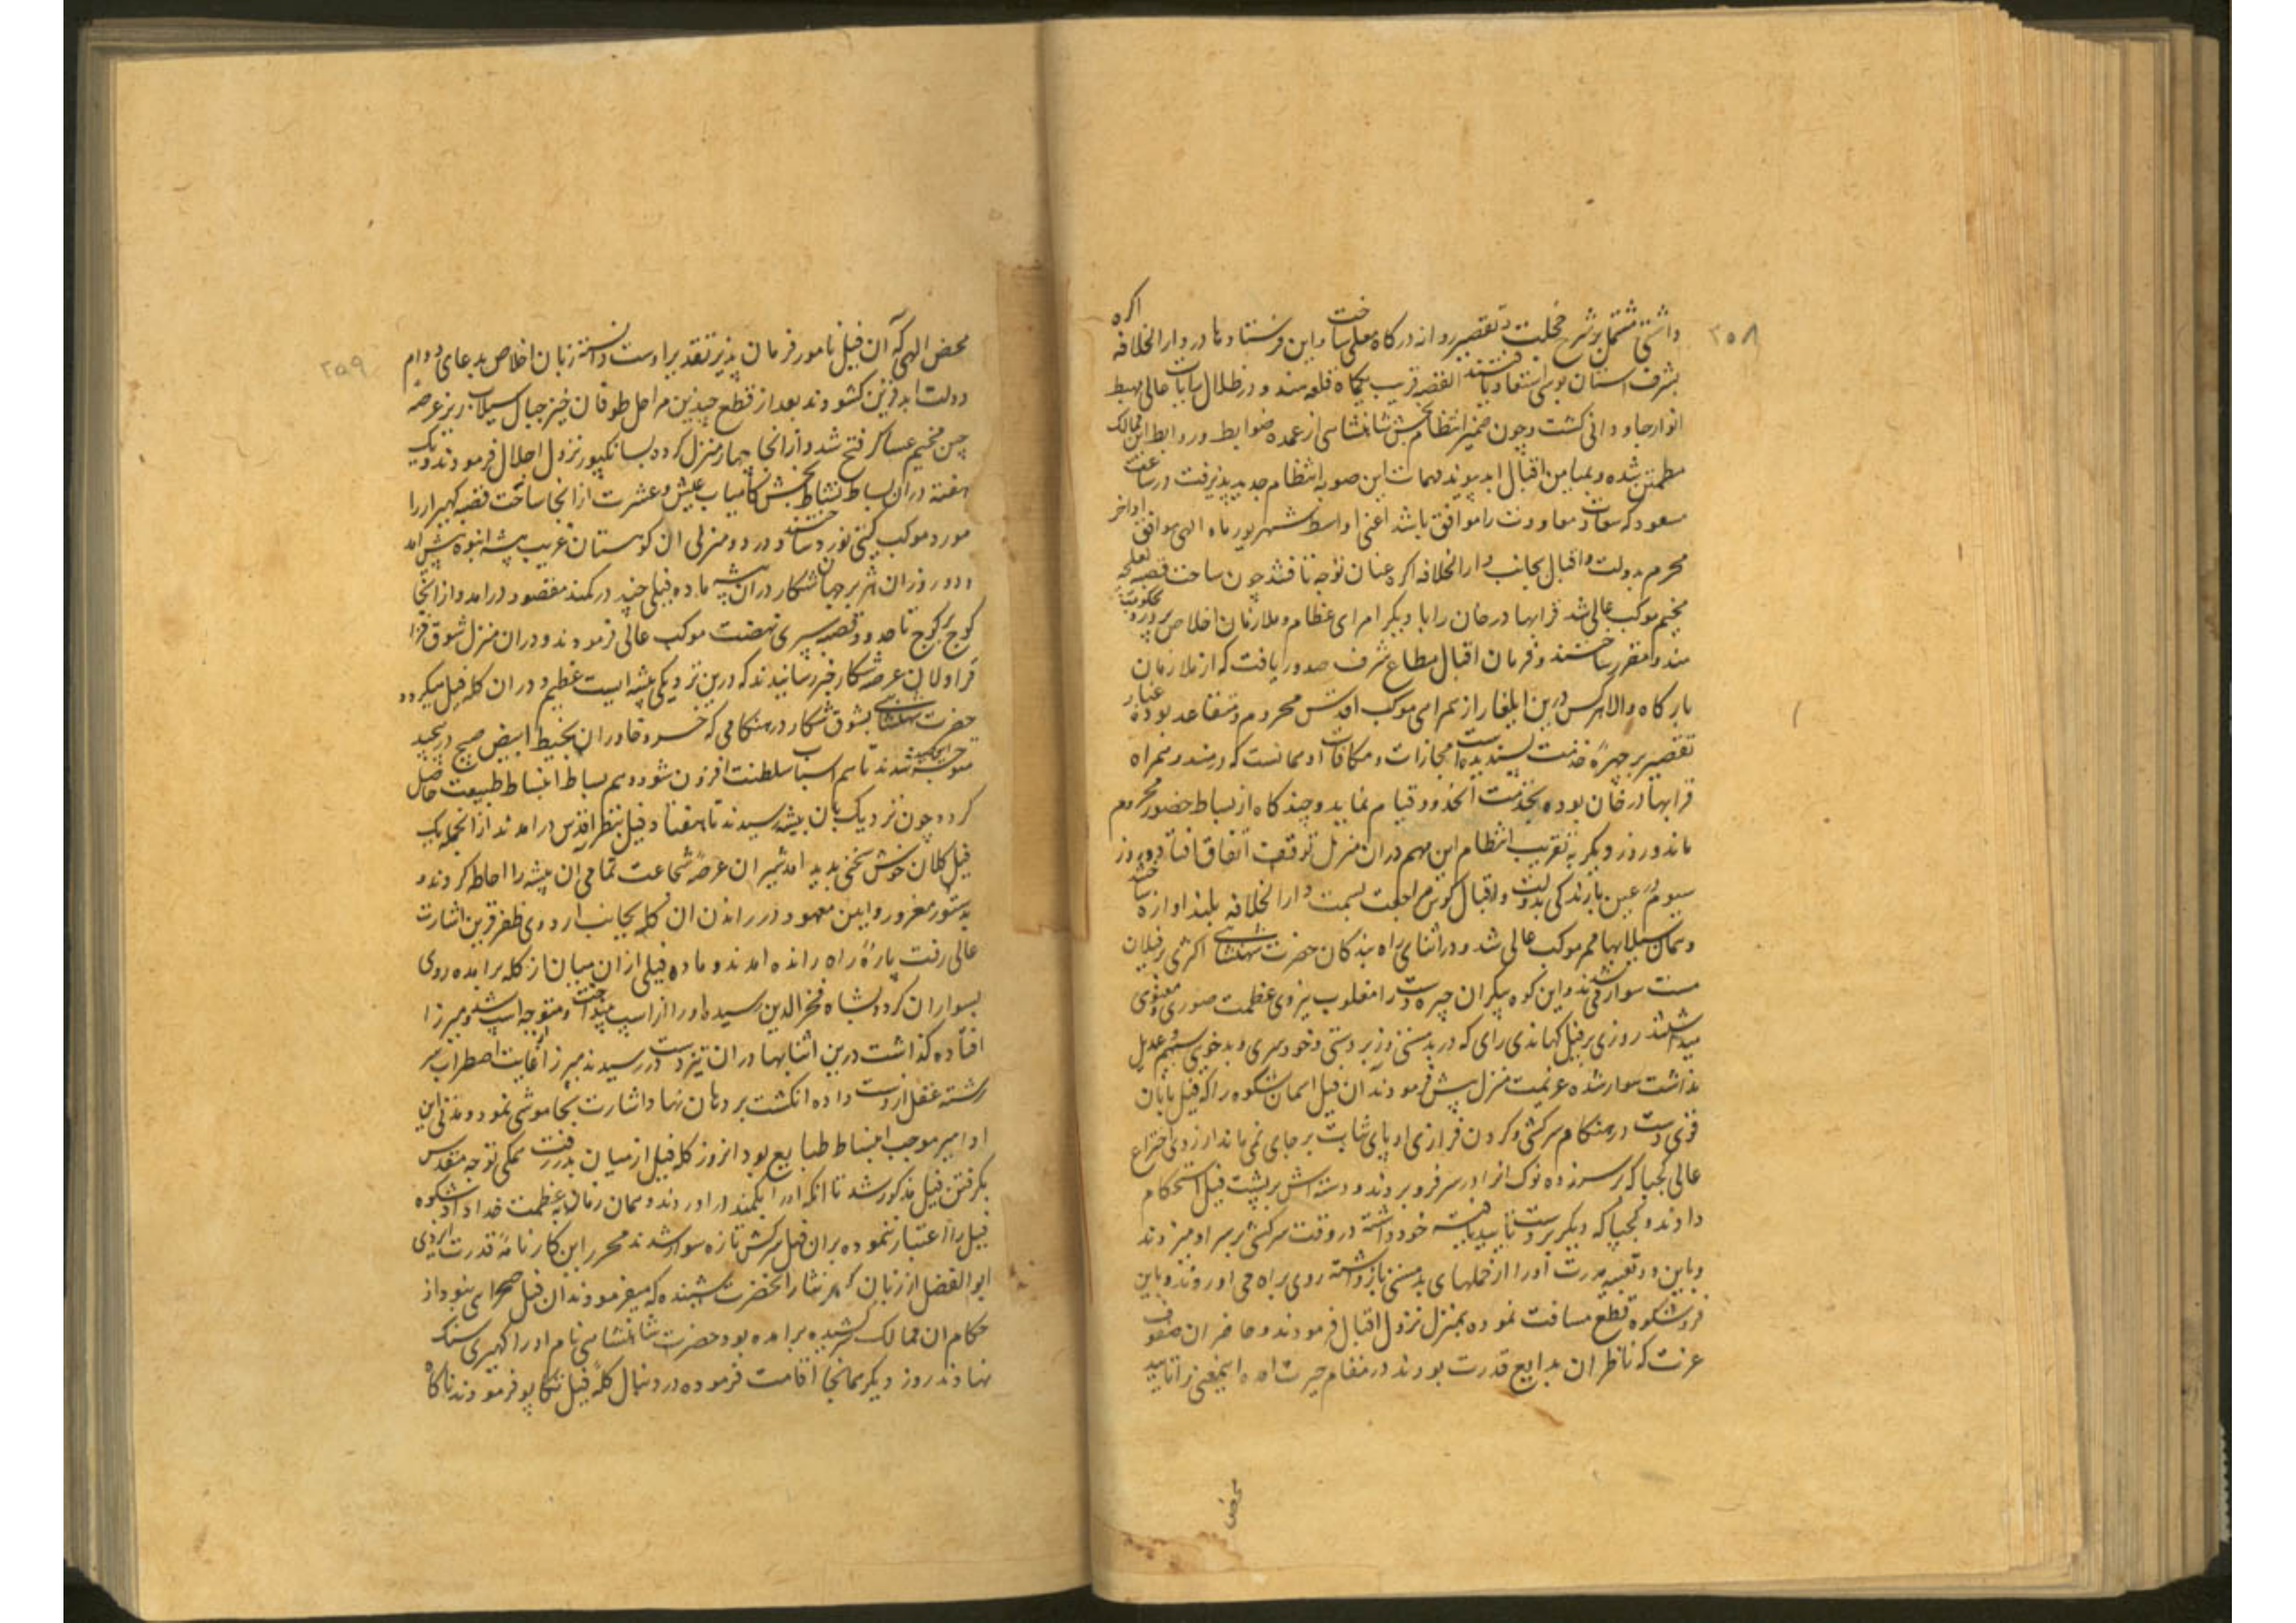 ۲۵۸
داشتی مشتمل بر شرح خجلت و تقصیر روانه درکاه معلی ساخت و این فرستاد ها در دار الخلافه اکره
بشرف استان بوسی استسعاد یافتند القصه قریب یکماه قلعه مندو در ظلال رایات عالی مهبط
انوار جاودانی کشت و چون ضمیر انتظام بخش شاهنشاهی از عمده ضوابط و روابط این ممالک
مطمئن شده و بمیامن اقبال ابد پیوند مهمات این صوبه انتظام جدید پذیرفت در ساعت
مسعود که سعادت معاودت را موافق باشد اعنی اواسط شهریور ماه الهی موافق اواخر
محرم بدولت و اقبال بجانب دار الخلافه اکره عنان توجه تافتند چون ساحت قصبه نعلچه
مخیم موکب عالی شد قرابهادر خان را با دیکر امرای عظام و ملازمان اخلاص پرور و بحکومت
مندو مقرر ساختند و فرمان اقبال مطاع شرف صدور یافت که از ملازمان
بارکاه والا هر کس درین ایلغار از همراهی موکب اقدس محروم و متقاعد بوده غبار
تقصیر بر چهرهٔ خدمت پسندیده است مجازات و مکافات او همانست که در مندو همراه
قرابهادر خان بوده بخدمت انحدود قیام نماید و چندکاه از بساط حضور محروم
ماند و روز دیکر به تقریب انتظام این مهم دران منزل توقف اتفاق افتاد و روز
سیوم در عین بارندکی بدولت و اقبال کوس مراجعت بسمت دار الخلافه بلند اوازه ساختند
و همان سیلابها ممر موکب عالی شد و در اثنای راه بندکان حضرت شهنشاهی اکثری بر فیلان
مست سوار میشدند و این کوه پیکران چیره دست را مغلوب نیروی عظمت صوری و معنوی
میداشتند روزی بر فیل کهاندی رای که در بدمستی و زبر دستی و خودسری و بدخویی سهیم عدیل
نداشت سوار شده عزیمت منزل پیش فرمودند ان فیل اسمان شکوه را که فیل بانان
قوی دست در هنکام سرکشی و کردن فرازی او پای ثبات بر جای نمی ماند از روی اختراع
عالی کجباکه بر سر زده نوک انرا در سر فرو بردند و دسته اش بر پشت فیل استحکام
دادند و کجباکه دیکر بدست تایید یافته خود داشته در وقت سرکشی بر سر او میزدند
و باین دو تعبیه قدرت او را از حملهای بدمستی باز داشته روی براه می اوردند و باین
فر و شکوه قطع مسافت نموده بمنزل نزول اقبال فرمودند و حاضران صفوف
عزت که ناظران بدایع قدرت بودند در مقام حیرت امده اینمعنی را تایید
محض
۲۵۹
محض الهی که آن فیل نامور فرمان پذیر تقدیر اوست دانسته زبان اخلاص بدعای دوام
دولت ابد قرین کشودند بعد از قطع چندین مراحل طوفان خیز جبال سیلاب ریز عرصه
چین مخیم عساکر فتح شد و از انجا چهار منزل کرده بسانکپور نزول اجلال فرمودند و یک
هفته دران بساط نشاط بخش کامیاب عیش و عشرت از انجا ساحت قصبه کهیرار را
مورد موکب کیتی نورد ساختند و در دو منزلی ان کوهستان غریب بیشه انبوه پیش امد
و دو روز ان هژبر جهان شکار دران بیشه ماده فیلی چند در کمند مقصود درامد و از انجا
کوچ بر کوچ تا حدود قصبه سپری نهضت موکب عالی فرمودند و دران منزل شوق افزا
قراولان عرصهٔ شکار خبر رسانیدند که درین نزدیکی بیشه ایست عظیم و دران کله فیل میکردد
حضرت شهنشاهی بشوق شکار در هنکامی که خسرو خاوران بخیط ابیض صبح در پیچید
متوجه انجانب شدند تا هم اسباب سلطنت افزون شود و هم بساط انبساط طبیعت حاصل
کرده چون نزدیک بان بیشه رسیدند تا هفتاد فیل بنظر اقدس درامدند از انجمله یک
فیل کلان خوش شخی پدید امد شیران عرصهٔ شجاعت تمامی ان بیشه را احاطه کردند و
بدستور مغرور و ایین معهود در راندن ان کله بجانب اردوی ظفر قرین اشارت
عالی رفت پارهٔ راه رانده امدند و ماده فیلی از ان میان از کله برامده روی
بسواران کرد و بشاه فخر الدین رسیده او را از اسپ پنداخت و متوجه اسپ شد و میرزا
افتاده کذاشت درین اثنا بهادران تیز دست در رسیدند میرزا از غایت اضطراب سر
رشته عقل از دست داده انکشت بر دهان نهاد و اشارت بخاموشی نمودند و این
ادا میر موجب انبساط طبایع بود انروز کله فیل از میان بدر رفت همکی توجه مقدس
بکرفتن فیل مذکور شد تا انکه او را بکمند دراوردند و همان زمان بعظمت خداداد شکوه
فیل را اعتبار ننموده بران فیل سرکش تازه سوار شدند محرر این کارنامهٔ قدرت ایزدی
ابو الفضل از زبان کوهر نثار انحضرت شنیده که میفرمودند ان فیل صحرایی نبود از
حکام ان ممالک کشیده برامده بود حضرت شاهنشاهی نام او را کهیری سنک
نهادند روز دیکر همانجا اقامت فرموده در دنبال کلهٔ فیل تکاپو فرمودند ناکاه